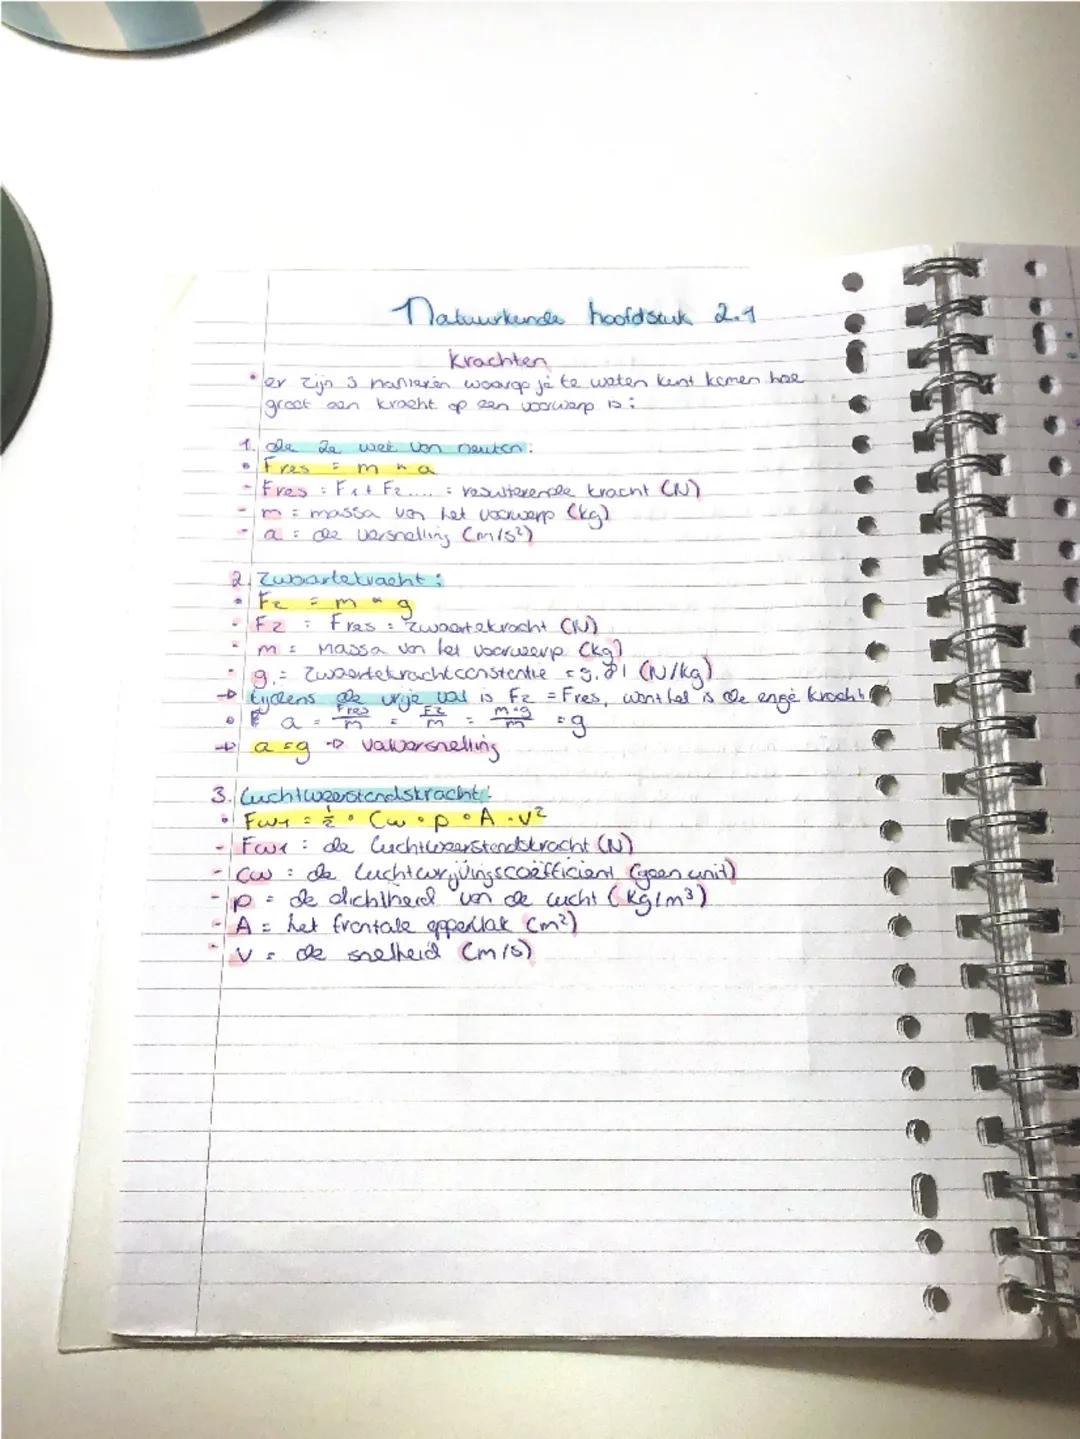 Natuurkunde hoofdstuk 2.1
Krachten
• er zijn 3 manieren waarop je te weten kunt komen hoe
groot een kracht op een voorwerp is:
1. de 2e wet van neuton:
• Fres = m × a
- Fres : F1 + F2.... = resulterende kracht (N)
- m = massa van het voorwerp (kg)
- a = de versnelling (m/s²)
2. Zwaartekracht:
• Fz = m × g
- Fz = Fres = zwaartekracht (N)
- m = massa van het voorwerp (kg)
- g = Zwaartekrachtconstente = 9,81 (N/kg)
→ tijdens de vrije val is Fz = Fres, want het is de enge kracht
• a = Fres/m = Fz/m = m×g/m = g
→ a = g → valversnelling
3. Luchtweerstandskracht:
• Fwl = ½ • Cw • p • A • v²
- Fwl : de luchtweerstandskracht (N)
- Cw : de luchtwrijvingscoëfficient (geen unit)
- p = de dichtheid van de lucht (kg/m³)
- A = het frontale opperlak (m²)
- V = de snelheid (m/s)